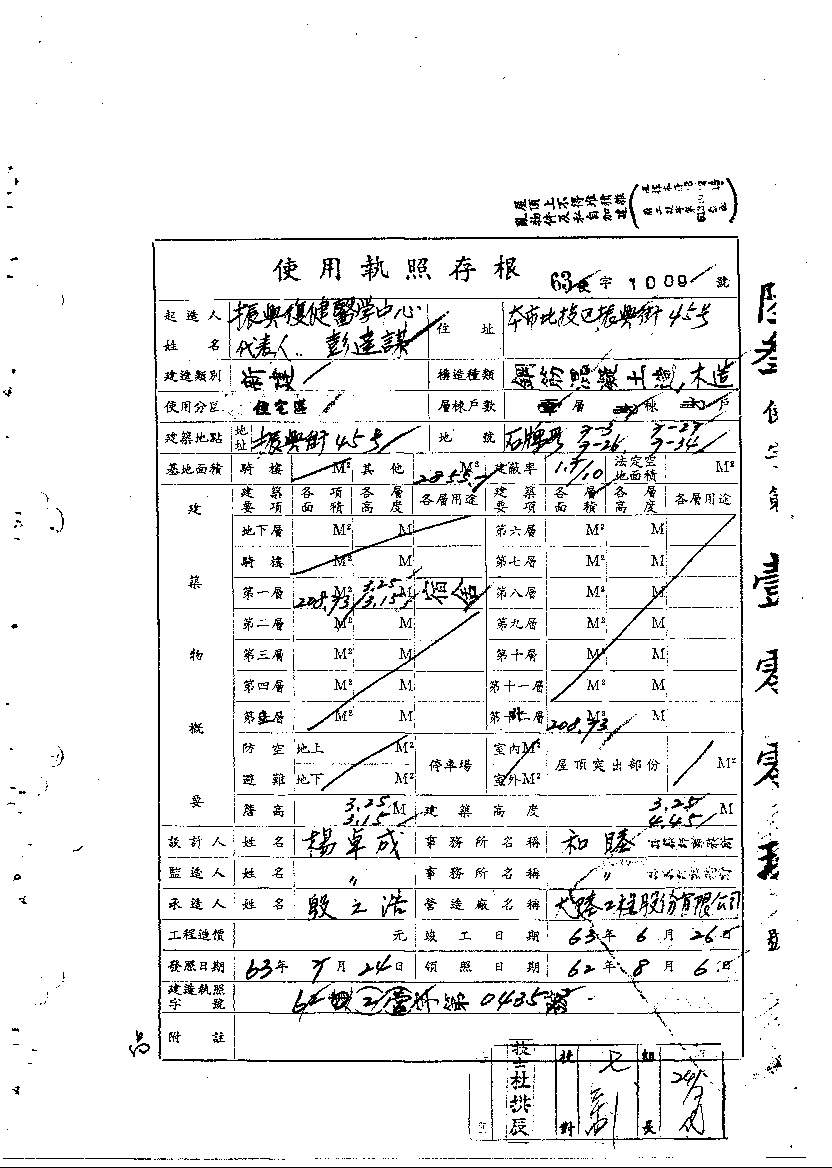 屋頂上不得堆積雜
亂物件及私自加建
使用執照存根
63 字 1009 號
起造人 振興復健醫學中心 住址 本市北投區振興街45号
姓名 代表人：彭達謀
建造類別 新建 構造種類 鋼筋混凝土造，木造
使用分區 住宅區 層棟戶數 層 棟 戶
建築地點 地址 振興街45号 地號 石牌段 7-3 7-27
7-26 7-34
基地面積 騎樓 M² 其他 2855 M² 建蔽率 /10 法定空地面積 M²
建築物概要
建築要項 各項面積 各層高度 各層用途 建築要項 各層面積 各層高度 各層用途
地下層 M² M 第六層 M² M
騎樓 M² M 第七層 M² M
第一層 208.93 M² 3.25 3.15 M 宿舍 第八層 M² M
第二層 M² M 第九層 M² M
第三層 M² M 第十層 M² M
第四層 M² M 第十一層 M² M
第五層 M² M 第十二層 208.93 M² M
防空 地上 M² 停車場 室內M² 屋頂突出部份 M²
避難 地下 M² 室外M²
簷高 3.25 3.15 M 建築高度 3.25 4.45 M
設計人 姓名 楊卓成 事務所名稱 和睦
監造人 姓名 〃 事務所名稱 〃
承造人 姓名 殷之浩 營造廠名稱 大陸工程股份有限公司
工程造價 元 竣工日期 63年6月26日
發照日期 63年7月24日 領照日期 62年8月6日
建造執照字號 62 0435號
附註
技士杜拱辰
校對
組長